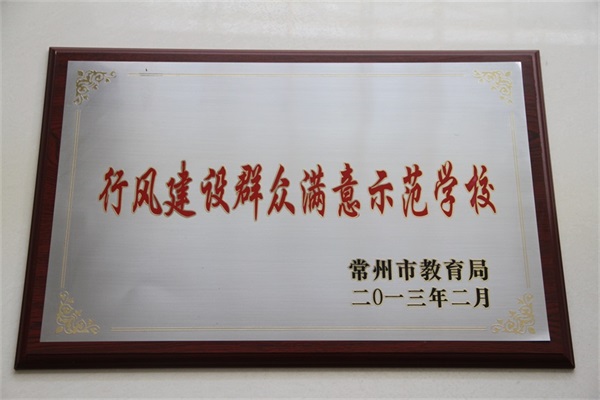 行风建设群众满意示范学校
常州市教育局
二〇一三年二月